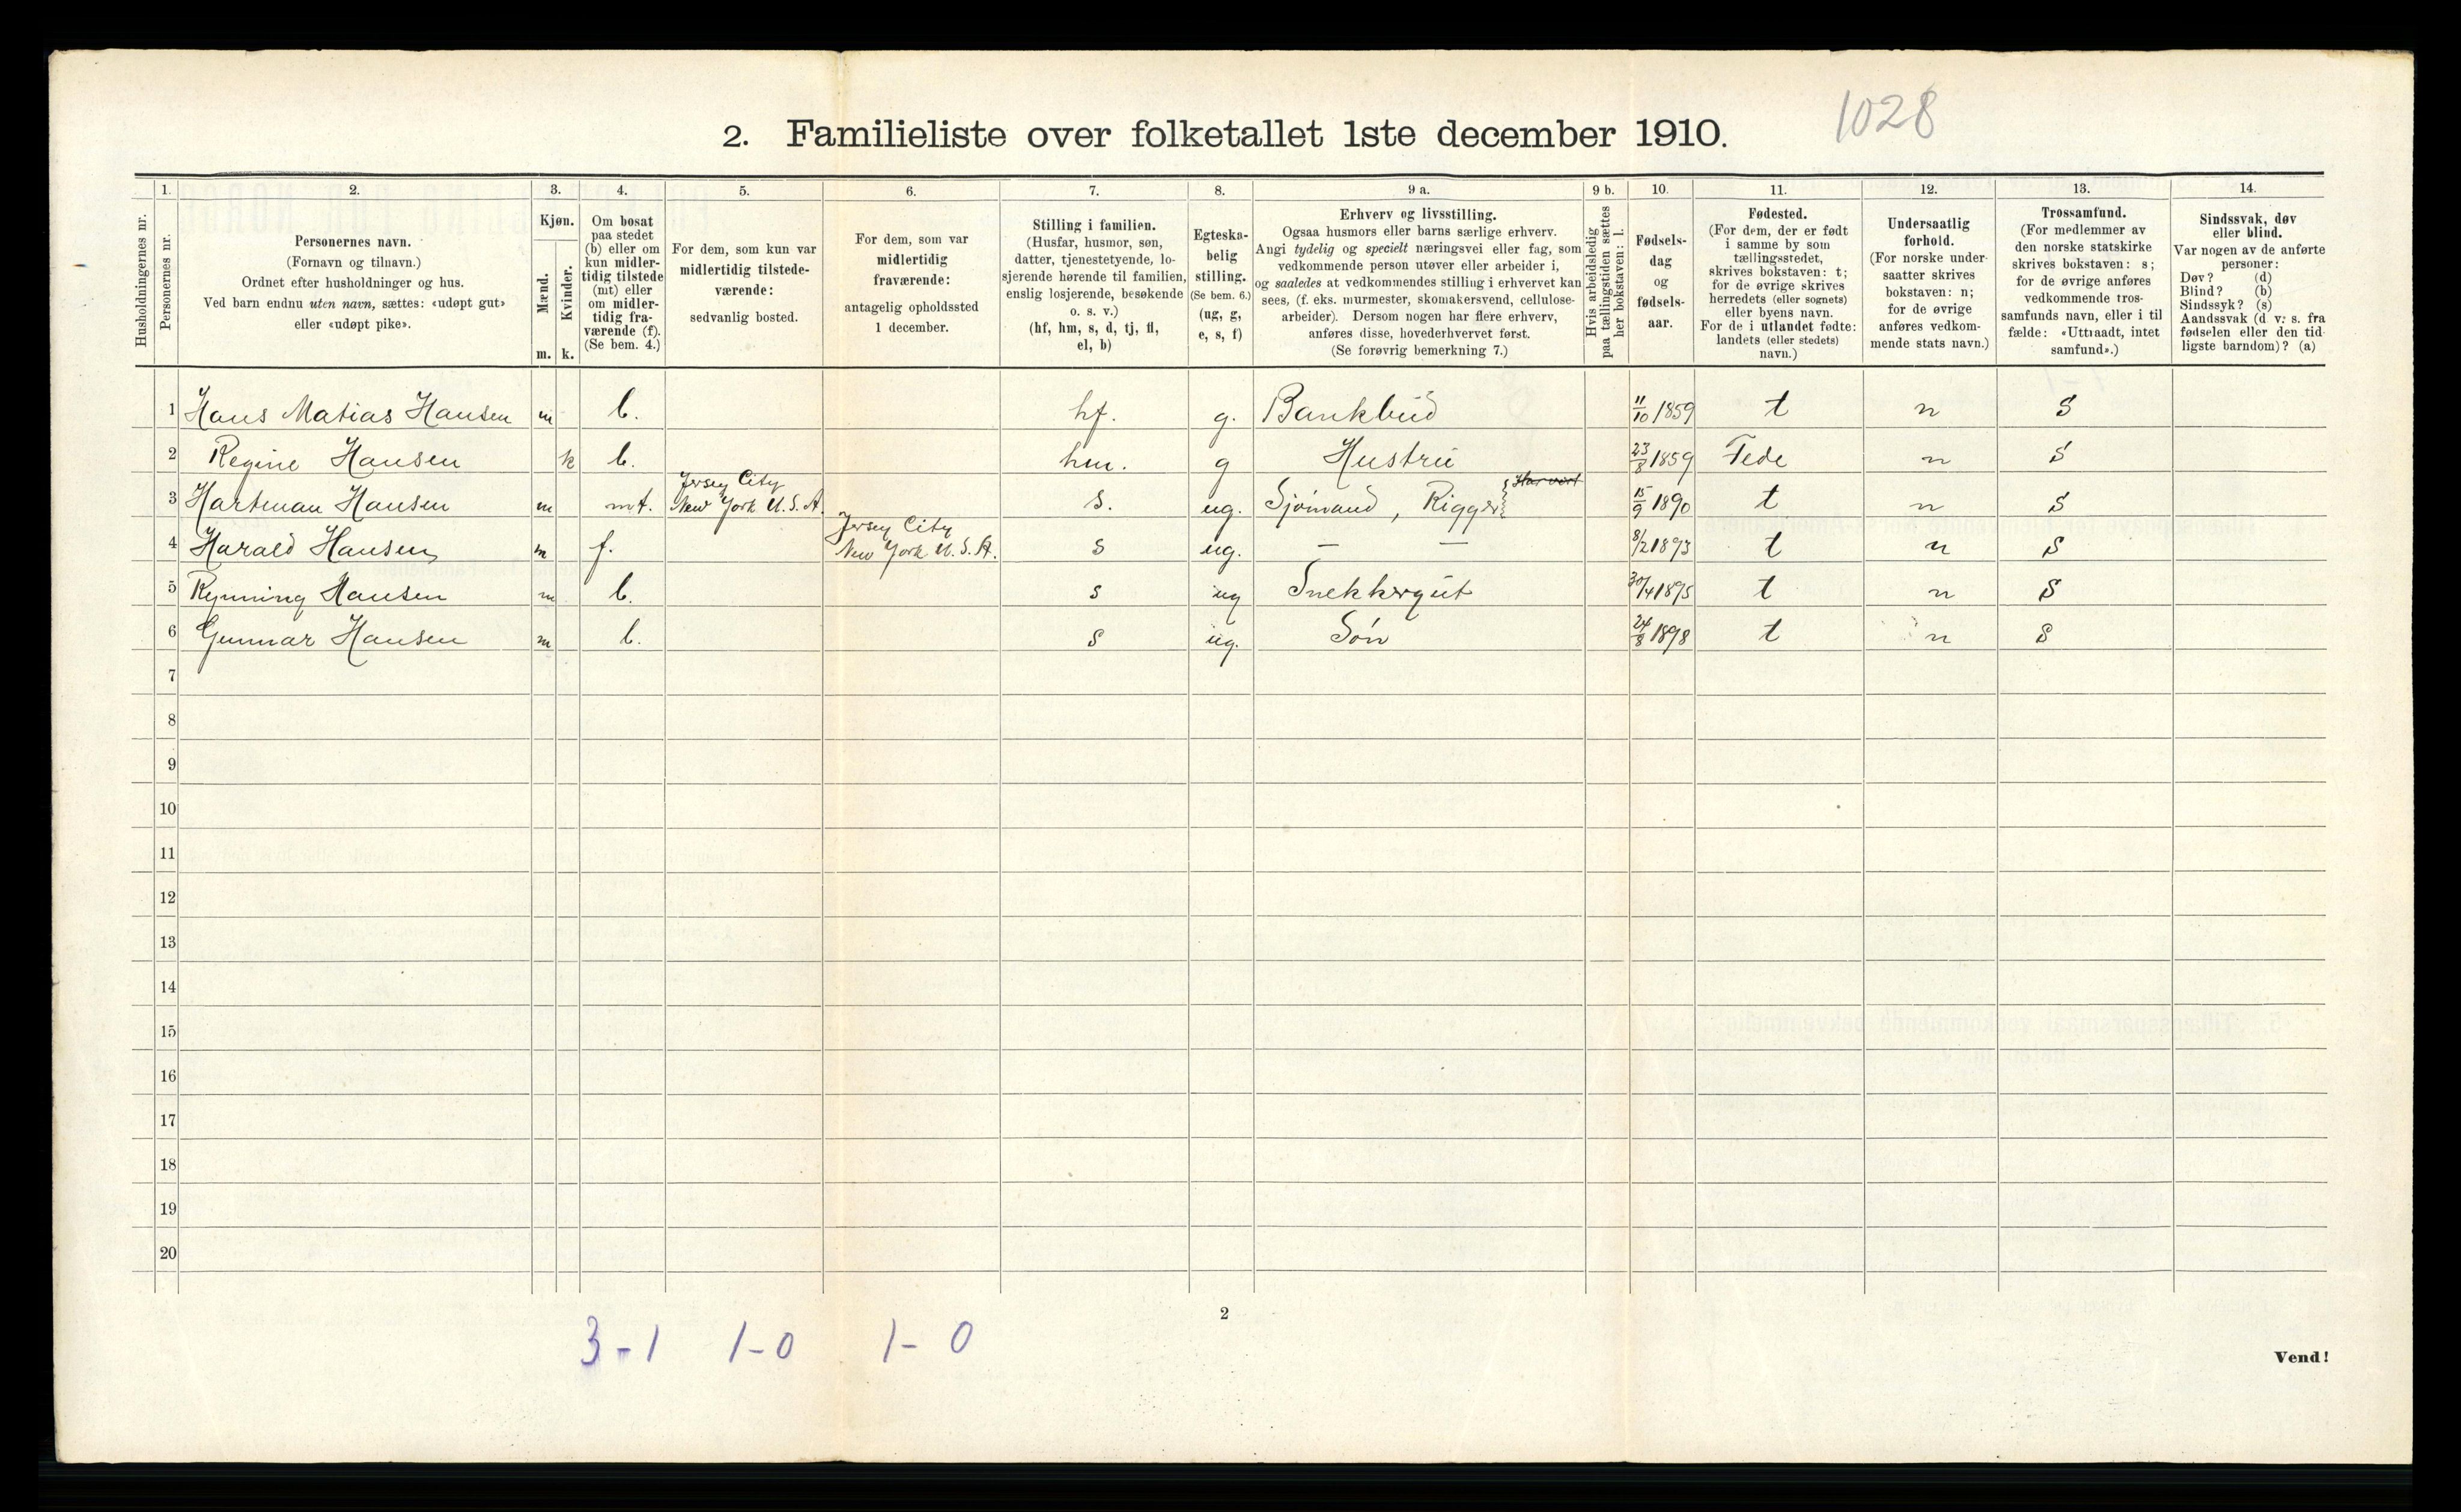 1028
2. Familieliste over folketallet 1ste december 1910.
1. 2. 3. 4. 5. 6. 7. 8. 9 a. 9 b. 10. 11. 12. 13. 14.
Husholdningernes nr.
Personernes nr.
Personernes navn.
(Fornavn og tilnavn.)
Ordnet efter husholdninger og hus.
Ved barn endnu uten navn, sættes: «udøpt gut»
eller «udøpt pike».
Kjøn.
Mænd.
Kvinder.
m. k.
Om bosat
paa stedet
(b) eller om
kun midler-
tidig tilstede
(mt) eller
om midler-
tidig fra-
værende (f).
(Se bem. 4.)
For dem, som kun var
midlertidig tilstede-
værende:
sedvanlig bosted.
For dem, som var
midlertidig
fraværende:
antagelig opholdssted
1 december.
Stilling i familien.
(Husfar, husmor, søn,
datter, tjenestetyende, lo-
sjerende hørende til familien,
enslig losjerende, besøkende
o. s. v.)
(hf, hm, s, d, tj, fl,
el, b)
Egteska-
belig
stilling.
(Se bem. 6.)
(ug, g,
e, s, f)
Erhverv og livsstilling.
Ogsaa husmors eller barns særlige erhverv.
Angi tydelig og specielt næringsvei eller fag, som
vedkommende person utøver eller arbeider i,
og saaledes at vedkommendes stilling i erhvervet kan
sees, (f. eks. murmester, skomakersvend, cellulose-
arbeider). Dersom nogen har flere erhverv,
anføres disse, hovederhvervet først.
(Se forøvrig bemerkning 7.)
Hvis arbeidsledig
paa tællingstiden sættes
her bokstaven: l.
Fødsels-
dag
og
fødsels-
aar.
Fødested.
(For dem, der er født
i samme by som
tællingsstedet,
skrives bokstaven: t;
for de øvrige skrives
herredets (eller sognets)
eller byens navn.
For de i utlandet fødte:
landets (eller stedets)
navn.)
Undersaatlig
forhold.
(For norske under-
saatter skrives
bokstaven: n;
for de øvrige
anføres vedkom-
mende stats navn.)
Trossamfund.
(For medlemmer av
den norske statskirke
skrives bokstaven: s;
for de øvrige anføres
vedkommende tros-
samfunds navn, eller i til-
fælde: «Uttraadt, intet
samfund».)
Sindssvak, døv
eller blind.
Var nogen av de anførte
personer:
Døv? (d)
Blind? (b)
Sindssyk? (s)
Aandssvak (d. v. s. fra
fødselen eller den tid-
ligste barndom)? (a)
1 Hans Matias Hansen m b. hf. g. Bankbud 11/10 1859 t n S
2 Regine Hansen k b. hm. g Hustru 23/8 1859 Fede n S
3 Hartman Hansen m mt. Jersey City New York U. S. A. s. ug. Sjømand, Rigger Har vært 15/9 1890 t n S
4 Harald Hansen m f. Jersey City New York U. S. A. s ug. — — 8/2 1893 t n S
5 Rynning Hansen m b. s ug Snekkergut 30/4 1895 t n S
6 Gunnar Hansen m b. s ug. Søn 24/8 1898 t n S
7
8
9
10
11
12
13
14
15
16
17
18
19
20
2
3-1 1-0 1-0
Vend!